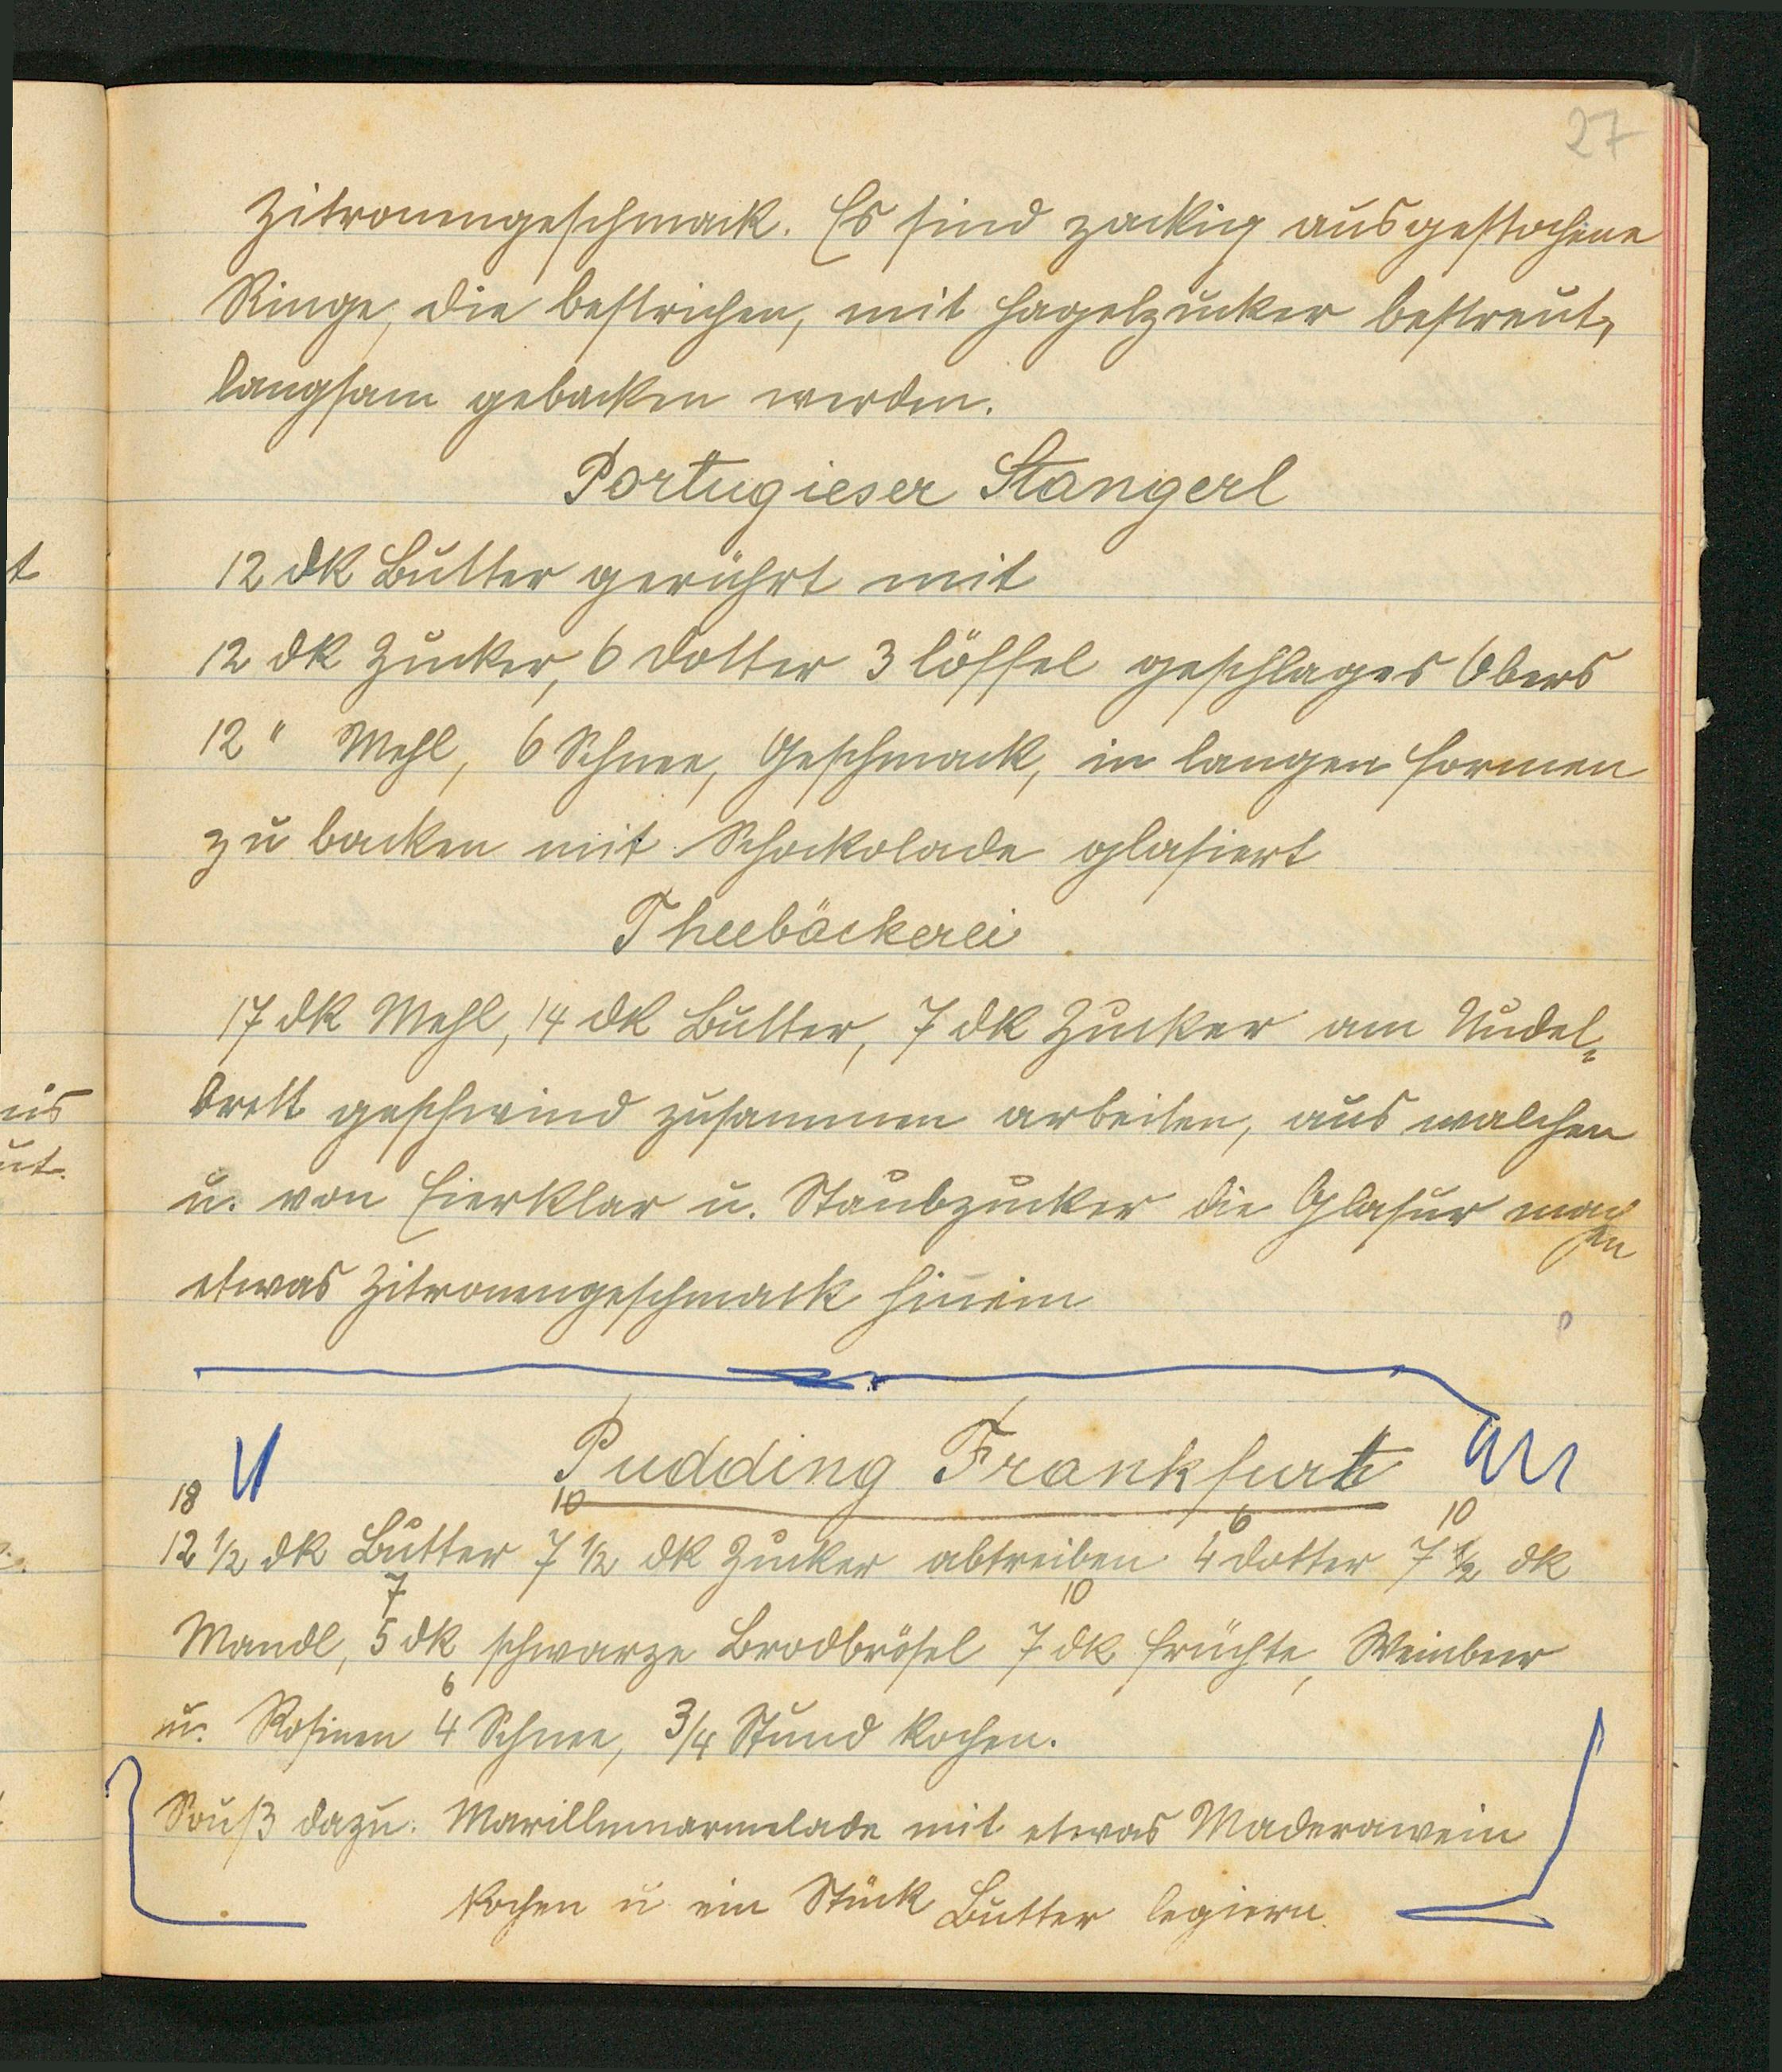 27
Zitronengeschmack. Es sind zackig ausgestochene
Ringe, die bestrichen, mit Hagelzucker bestreut,
langsam gebacken werden.
Portugieser Stangerl
12 dk Butter gerührt mit
12 dk Zucker, 6 Dotter 3 löffel geschlages Obers
12 " Mehl, 6 Schnee, Geschmack, in langen Formen
zu backen mit Schockolade glasiert
Theebäckerei
17 dk Mehl, 14 dk Butter, 7 dk Zucker am Nudel„
brett geschwind zusammen arbeiten, aus walchen
u. von Eierklar u. Staubzucker die Glasur machen
etwas Zitronengeschmack hinein
Pudding Frankfurt
18 10 6 10
12 1/2 dk Butter 7 1/2 dk Zucker abtreiben 4 Dotter 7 1/2 dk
7 10
Mandl, 5 dk schwarze Brodbrösel 7 dk Früchte, Weinbeer
6
u. Rosinen 4 Schnee, 3/4 Stund kochen.
Souß dazu: Marillenmarmelade mit etwas Maderawein
kochen u ein Stück Butter legiern.